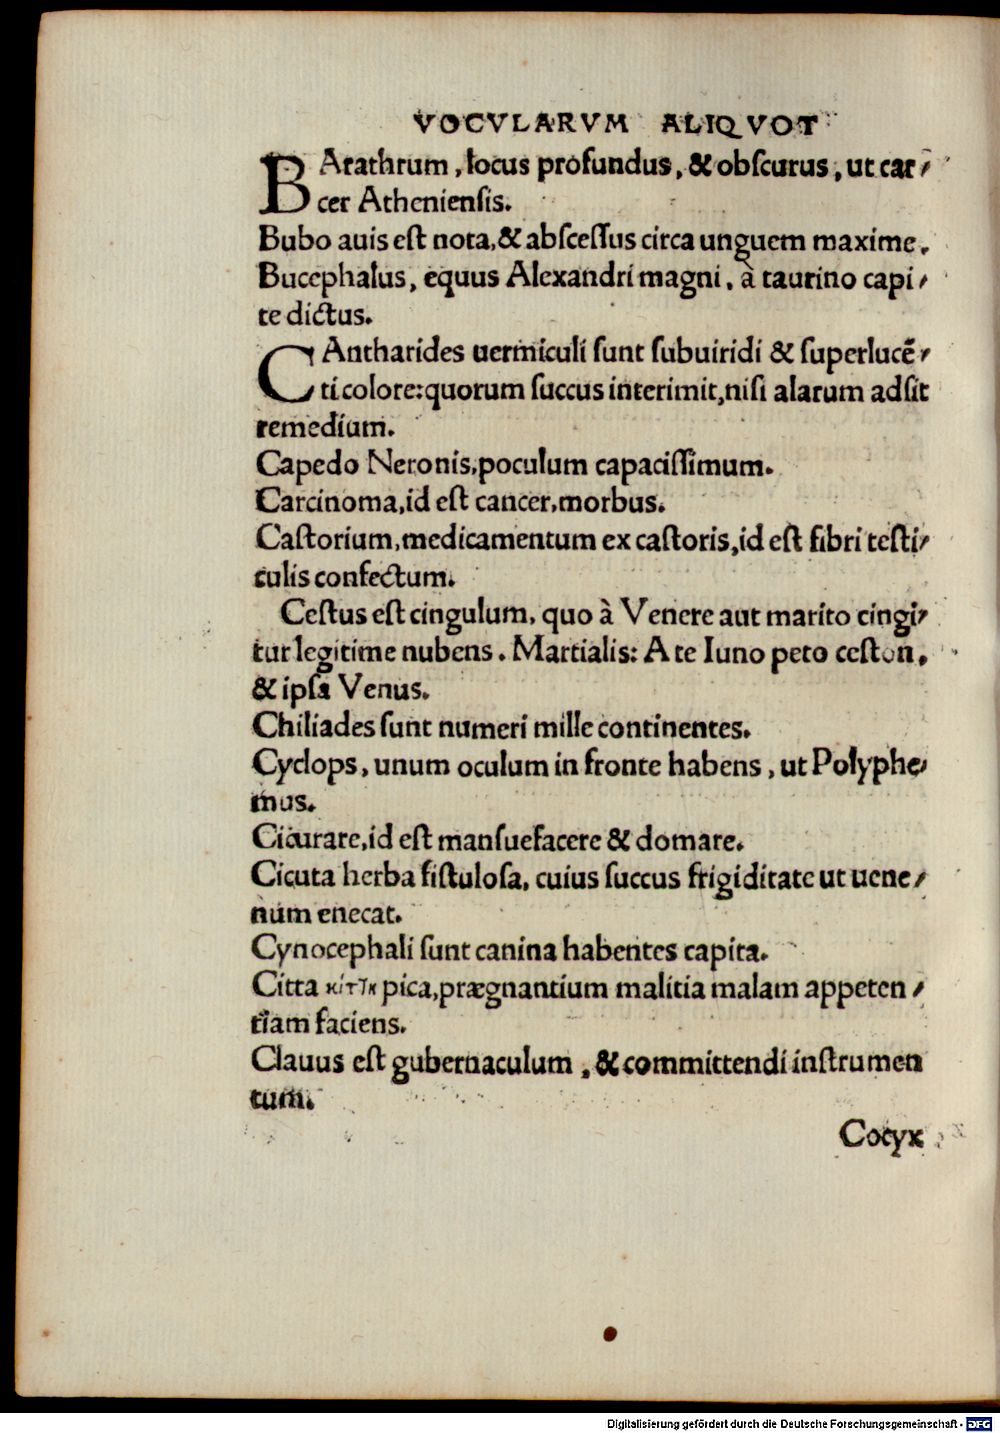 VOCVLARVM ALIQVOT
BArathrum, locus profundus, & obſcurus, ut car-
cer Athenienſis.
Bubo auis eſt nota, & abſceſſus circa unguem maxime.
Bucephalus, equus Alexandri magni, à taurino capi-
te dictus.
CAntharides uermiculi ſunt ſubuiridi & ſuperlucē-
ti colore: quorum ſuccus interimit, niſi alarum adſit
remedium.
Capedo Neronis, poculum capaciſſimum.
Carcinoma, id eſt cancer, morbus.
Caſtorium, medicamentum ex caſtoris, id eſt fibri teſti-
culis confectum.
Ceſtus eſt cingulum, quo à Venere aut marito cingi-
tur legitime nubens. Martialis: A te Iuno peto ceſton,
& ipſa Venus.
Chiliades ſunt numeri mille continentes.
Cyclops, unum oculum in fronte habens, ut Polyphe-
mus.
Cicurare, id eſt manſuefacere & domare.
Cicuta herba fiſtuloſa, cuius ſuccus frigiditate ut uene-
num enecat.
Cynocephali ſunt canina habentes capita.
Citta κίττα pica, prægnantium malitia malam appeten-
tiam faciens.
Clauus eſt gubernaculum, & committendi inſtrumen
tum.
Cocyx
Digitalisierung gefördert durch die Deutsche Forschungsgemeinschaft - DFG